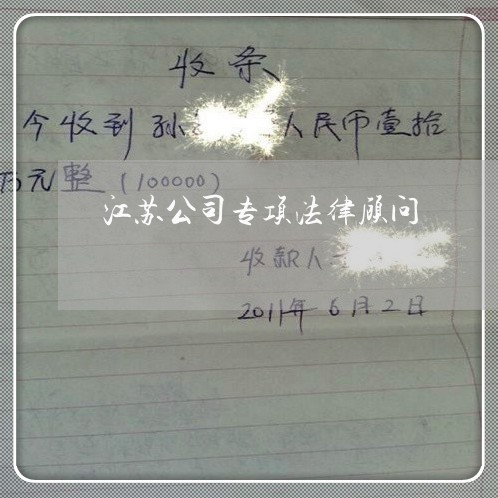 收条
今收到孙 人民币壹拾
万元整(100000)
江苏公司专项法律顾问
收款人
2011年6月2日